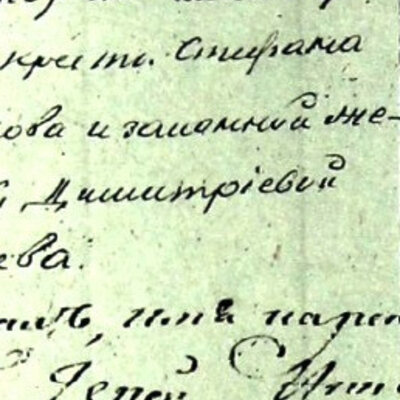 крест. Стефана
ова и законной же-
й Димитріевой
ева.
имя наре
Іерей